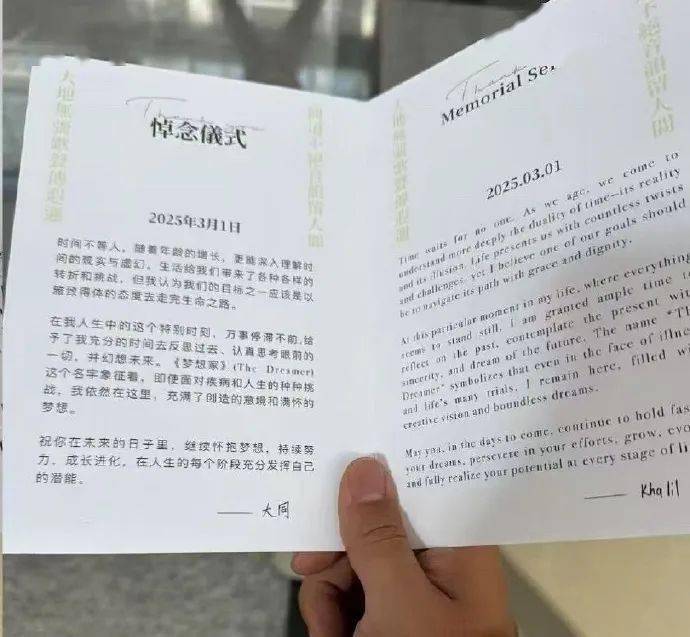 悼念儀式
2025年3月1日
时间不等人。随着年龄的增长，更能深入理解时
间的现实与虚幻。生活给我们带来了各种各样的
转折和挑战，但我认为我们的目标之一应该是以
雅致得体的态度去走完生命之路。
在我人生中的这个特别时刻，万事停滞不前,给
予了我充分的时间去反思过去、认真思考眼前的
一切，并幻想未来。《梦想家》(The Dreamer)
这个名字象征着，即便面对疾病和人生的种种挑
战，我依然在这里，充满了创造的意境和满怀的
梦想。
祝你在未来的日子里，继续怀抱梦想，持续努
力，成长进化，在人生的每个阶段充分发挥自己
的潜能。
—— 大同
不絕音韻留人間
Thank
Memorial Ser
2025.03.01
Time waits for no one. As we age, we come to
understand more deeply the duality of time—its reality
and its illusion. Life presents us with countless twists
and challenges, yet I believe one of our goals should
be to navigate its path with grace and dignity.
At this particular moment in my life, where everything
seems to stand still, I am granted ample time to
reflect on the past, contemplate the present with
sincerity, and dream of the future. The name "Th
Dreamer" symbolizes that even in the face of illne
and life's many trials, I remain here, filled wi
creative vision and boundless dreams.
May you, in the days to come, continue to hold fas
your dreams, persevere in your efforts, grow, evo
and fully realize your potential at every stage of li
—— Khalil